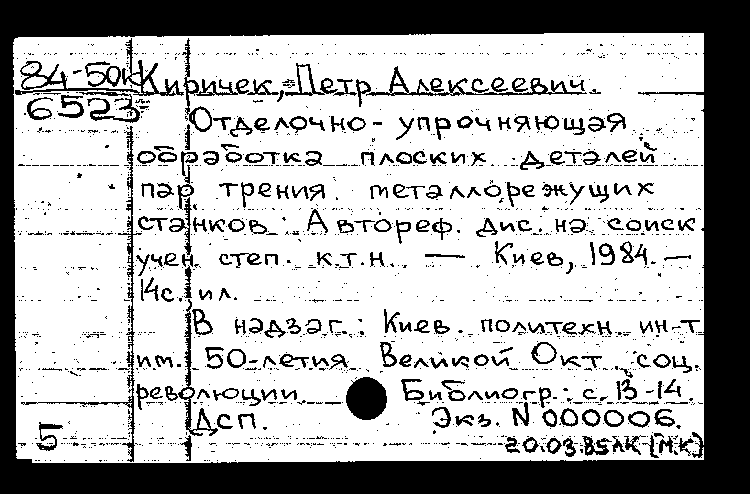 84-50к Киричек, Петр Алексеевич.
6523
Отделочно-упрочняющая
обработка плоских деталей
пар трения металлорежущих
станков: Автореф. дис. на соиск.
учен. степ. к.т.н. — Киев, 1984. —
14с. ил.
В надзаг.: Киев. политехн. ин-т
им. 50-летия Великой Окт. соц.
революции. Библиогр.: с. 13-14.
ДСП. Экз. N 000006.
5
20.03.85 ЛК (М.К)